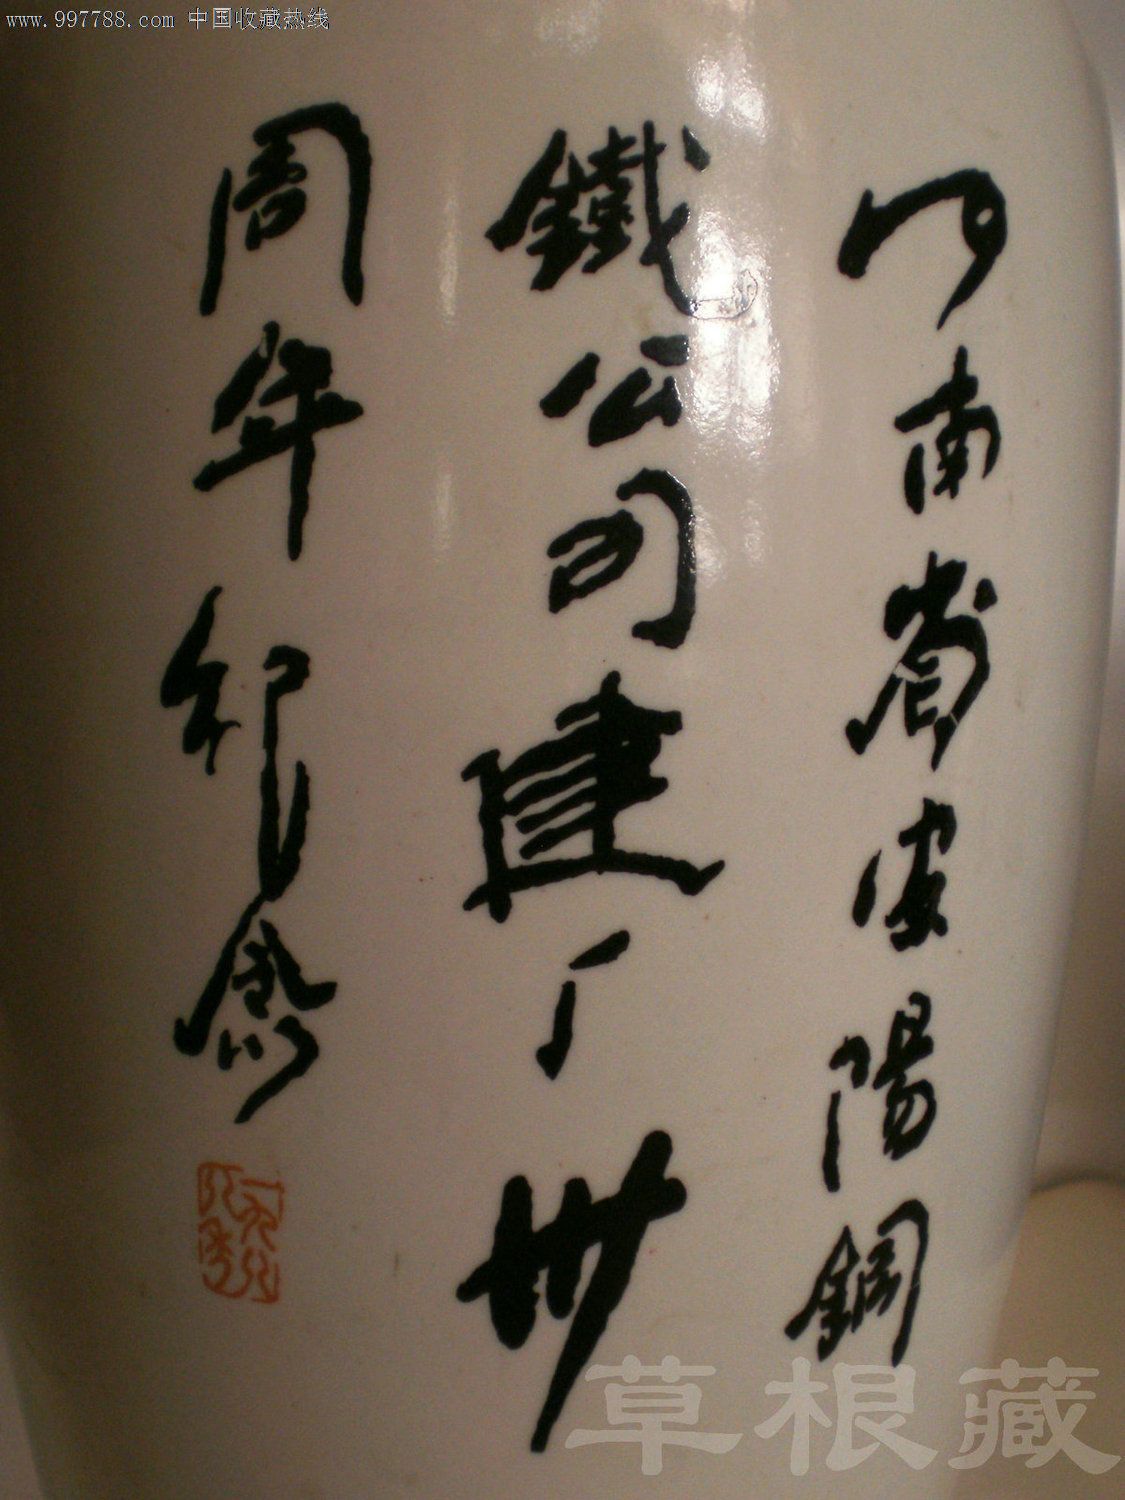 www.997788.com 中国收藏热线
河南省安陽鋼
鐵公司建厂卅
周年紀念
草根藏